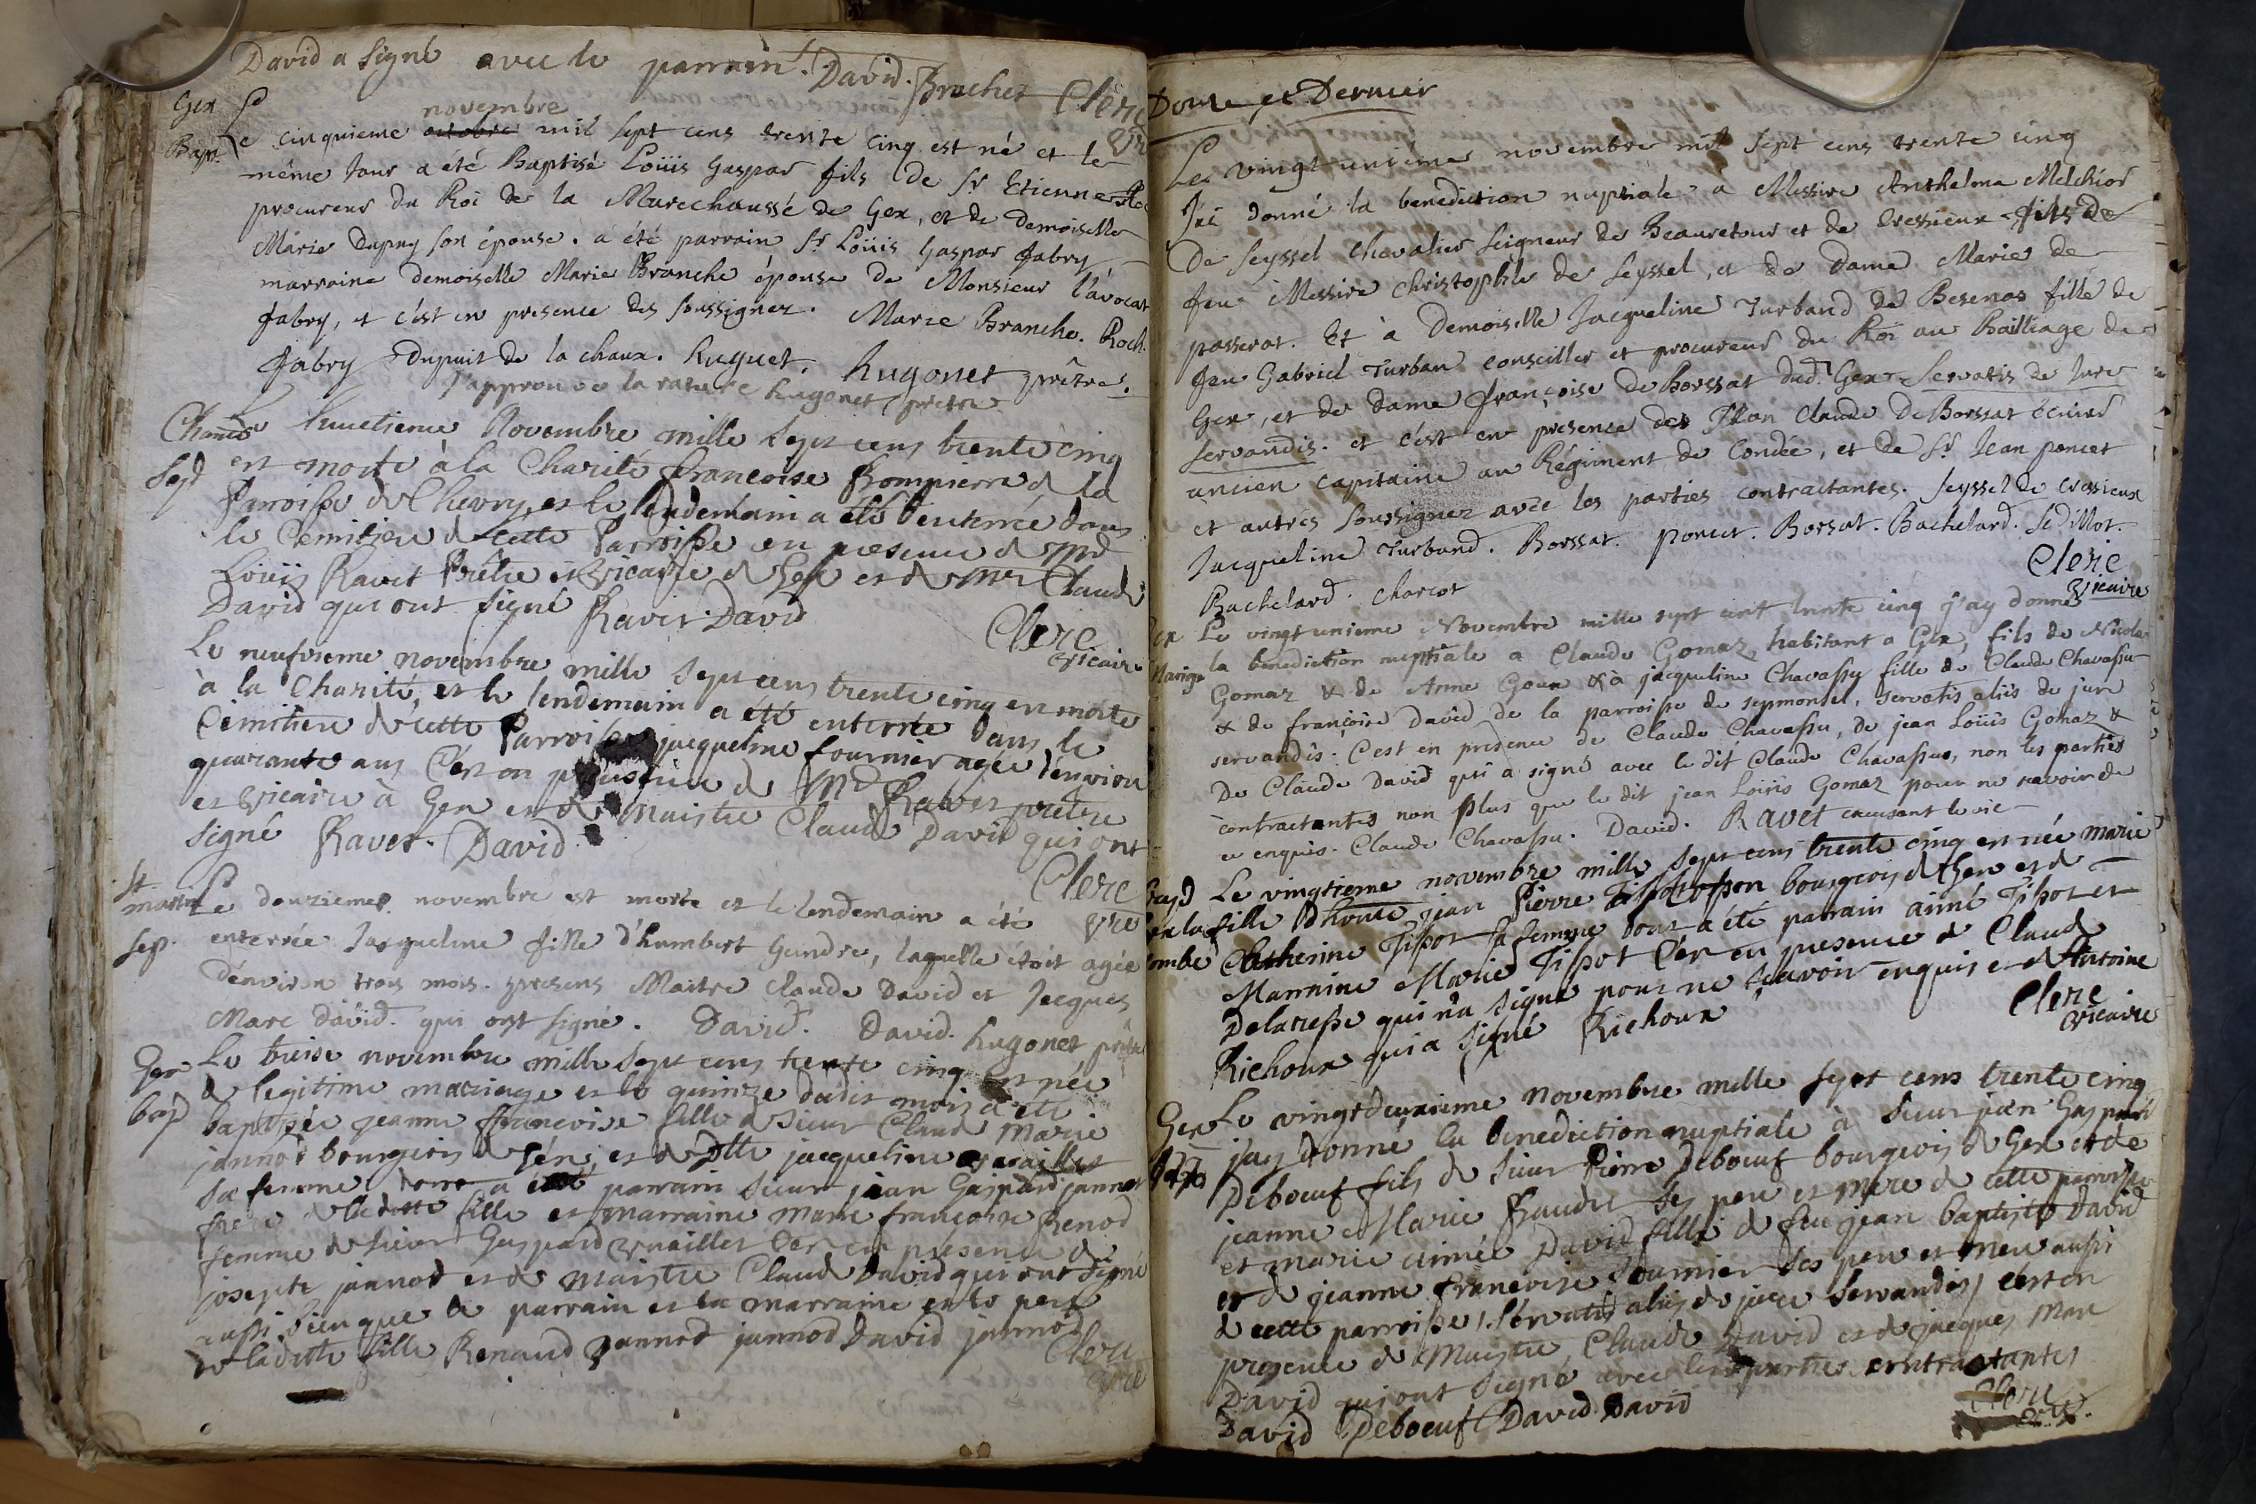 David a signé avec le parrain. David. Brachet Clerc
Gex
Bap.
novembre
Le cinquieme octobre mil sept cens trente cinq est né et le
même jour a été Baptisé Loüis Gaspar fils de Sr Etienne
procureur du Roi de la Marechaussé de Gex, et de demoiselle
Marie Dupuy son épouse. a été parrain Sr Loüis Gaspar fabry
marraine demoiselle Marie Branche épouse de Monsieur l'avocat
fabry, et c'est en presence des soussignez. Marie Branche. Roch.
fabry Dupuit de la chaux. huguet. hugonet prêtre.
J'approuve la rature hugonet prêtre
Le huictieme Novembre mille sept cens trente cinq
Sep
est morte à la Charité francoise Brompierre de la
Parroisse de Chevry, et le lendemain a été enterrée dans
le Cemitiere de cette Parroisse en presence de Mrd
Loüis Ravet Prêtre et Vicaire de Gex et de Mre Claude
David qui ont signé Ravet. David
Clerc
Vicaire
Le neufvieme novembre mille sept cens trente cinq est morte
à la Charité, et le lendemain a été enterrée dans le
Cemitiere de cette Parroisse jacqueline fournier agée d'environ
quarante ans C'est en presence de Mrd Ravet prêtre
et Vicaire à Gex et de Maistre Claude David qui ont
signé Ravet. David
Clerc
Vre
St martin
Sep.
Le douzieme novembre est morte et le lendemain a été
enterrée Jacqueline fille d'humbert Gendre, laquelle étoit agée
d'environ trois mois. presens Maitre Claude David et Jacques
Marc david. qui ont signé. David. David. hugonet prêtre
Gex
bap
Le treise novembre mille sept cens trente cinq est née
de legitime mariage et le quinze dudit mois a été
baptisée jeanne francoise fille de Sieur Claude Marie
jannod bourgeois de Gex et de Dlle jacqueline
sa femme dont a été parrain Sieur jean Gaspard jannod
frere de ladette fille et marraine Marie francoise Renod
femme de Sieur Gaspard Vuaillet C'est en presence de
josepte jannod et de Maistre Claude David qui ont signé
aussi bien que le parrain et la marraine et le pere
de ladette fille Renaud jannod jannod David jannod
Clerc
Vre
Douze et Dernier
Le vingt uniéme novembre mil sept cens trente cinq
J'ai donné la benediction nuptiale à Messire Anthelme Melchior
De Seyssel Chevalier Seigneur de Beauretour et de Cressieux fils de
feu Messire Christophle de Seyssel, et de Dame Marie de
passerat. Et à Demoiselle Jacqueline Turband de Besenas fille de
feu Gabriel Turban conseiller et procureur du Roi au Bailliage de
Gex, et de Dame françoise de Borssat dud. Gex. Servatis de Jure
servandis. et c'est en presence de Jean Claude De Borssat ecuier
ancien capitaine au Régiment de Condée, et de Sr Jean poncet
et autres soussignez avec les parties contractantes. Seyssel de cressieux
Jacqueline Turband. Borssat. poncet. Borsat. Bachelard. Sedillot.
Bachelard. Charcot
Clerc
Vicaire
Gex
Mariage
Le vingt unieme Novembre mille sept cent trente cinq j'ay donné
la benediction nuptiale a Claude Gomaz habitant a Gex, fils de Nicolas
Gomaz & de Anne Goux & à jacqueline Chavassu fille de Claude Chavassu
& de françoise David de la parroisse de sepmontel, servatis aliis de jure
servandis: C'est en presence de Claude Chavassu, de jean Loüis Gomaz &
De Claude David qui a signé avec le dit Claude Chavassu, non les parties
contractantes non plus que le dit jean Loüis Gomaz pour ne savoir de
ce enquis. Claude Chavassu. David. Ravet
Bap
Le vingtieme novembre mille sept cens trente cinq est née marie
fille d'honte jean Pierre bourgeois de Gex et de
Catherine Tissot sa femme dont a été parrain aimé Tissot et
Marraine Marie Tissot C'est en presence de Claude
Delatresse qui n'a signé pour ne scavoir enquis et d'Antoine
Richoux qui a signé Richoux
Clerc
Vicaire
Gex
Le vingtdeuxieme novembre mille sept cens trente cinq
j'ay donné la benediction nuptiale à Sieur jean Gaspard
Deboeuf fils de Sieur Pierre Deboeuf bourgeois de Gex et de
jeanne Marie Baudet ses pere et mere de cette parroisse
et marie aimée David fille de feu jean baptiste David
et de jeanne francoise fournier ses pere et mere aussi
de cette parroisse, servatis aliis de jure servandis, c'est en
presence de Maistre Claude David et de jacques Marc
David qui ont signé avec les parties contractantes
David Deboeuf David David
Clerc